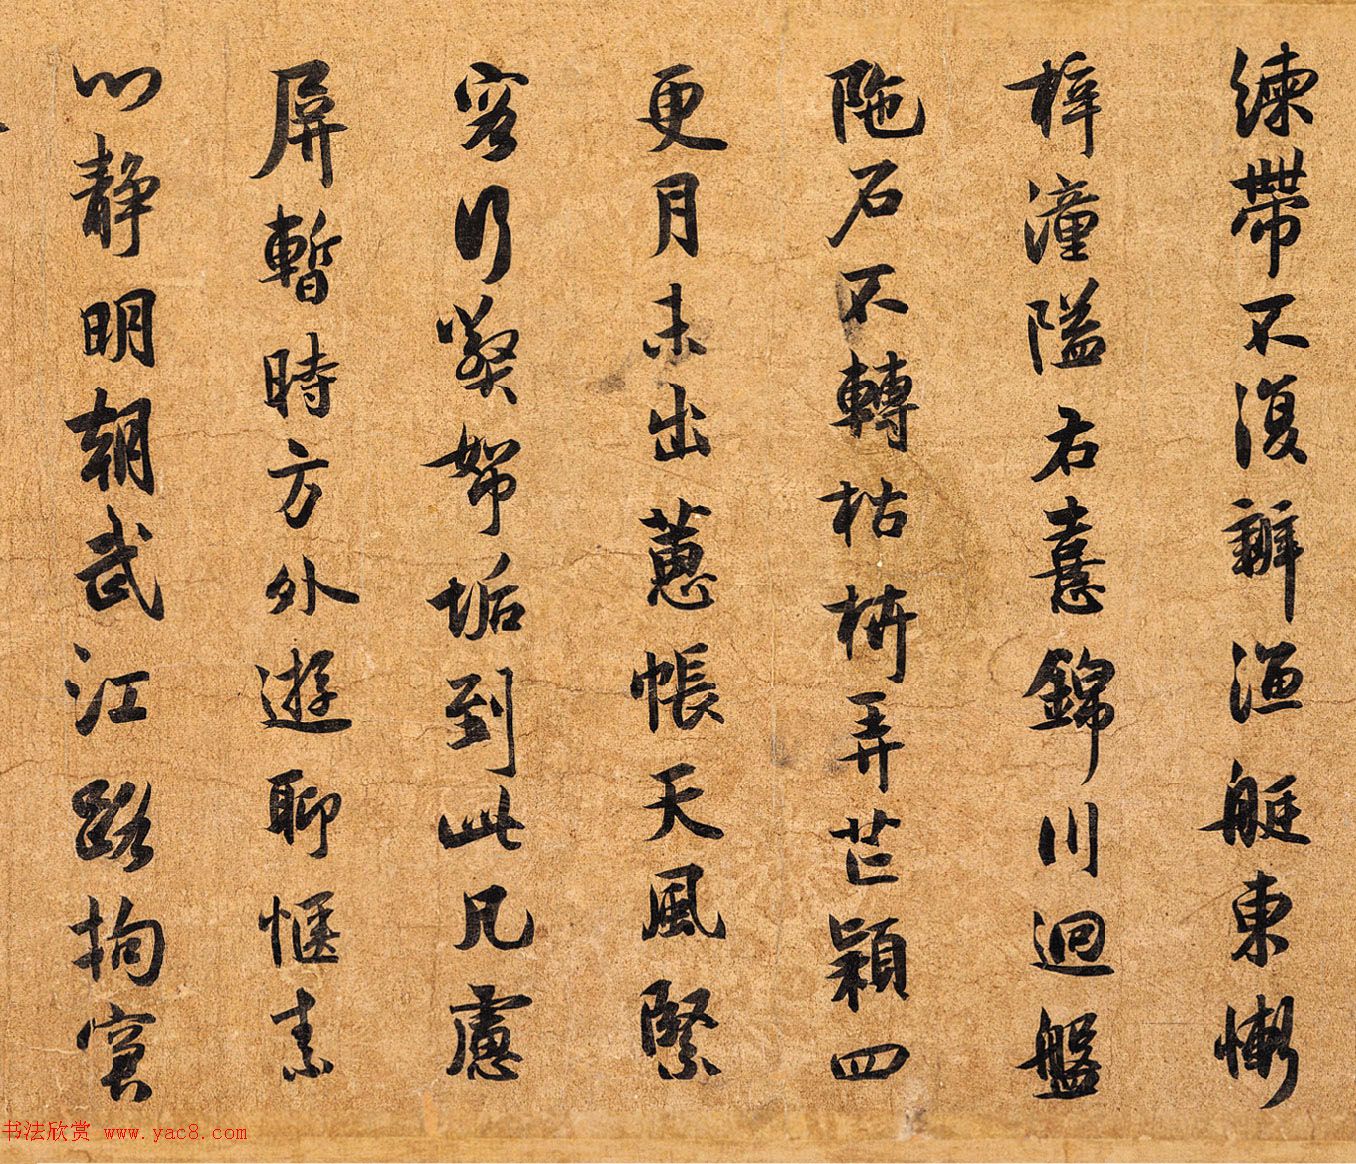 練帶不復辨漁艇東慚
梓潼隘右憙錦川迴盤
陁石不轉枯弄芒穎四
更月未出蕙帳天風緊
客行獘帤垢到此凡慮
屏暫時方外遊聊愜素
心靜明朝武江路拘窘
书法欣赏 www.yac8.com